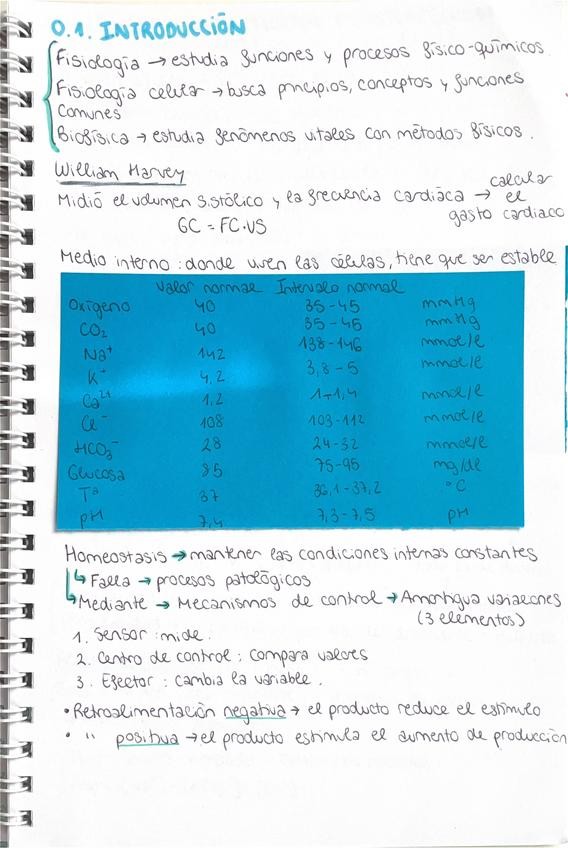 0.1. INTRODUCCIÓN
Fisiología → estudia funciones y procesos físico-químicos.
Fisiología celular → busca principios, conceptos y funciones
comunes
Biofísica → estudia fenómenos vitales con métodos físicos.
William Harvey
Midió el volumen sistólico y la frecuencia cardiáca → calcular el gasto cardiaco
GC = FC·VS
Medio interno: donde viven las células, tiene que ser estable
Valor normal Intervalo normal
Oxígeno 40 35-45 mmHg
CO₂ 40 35-45 mmHg
Na⁺ 142 138-146 mmol/l
K⁺ 4,2 3,8-5 mmol/l
Ca²⁺ 1,2 1-1,4 mmol/l
Cl⁻ 108 103-112 mmol/l
HCO₃⁻ 28 24-32 mmol/l
Glucosa 85 75-95 mg/dl
Tª 37 36,1-37,2 °C
pH 7,4 7,3-7,5 pH
Homeostasis → mantener las condiciones internas constantes
↳ Falla → procesos patológicos
↳ Mediante → Mecanismos de control → Amortigua variaciones
(3 elementos)
1. Sensor: mide.
2. Centro de control: compara valores
3. Efector: cambia la variable.
• Retroalimentación negativa → el producto reduce el estímulo
• " positiva → el producto estimula el aumento de producción